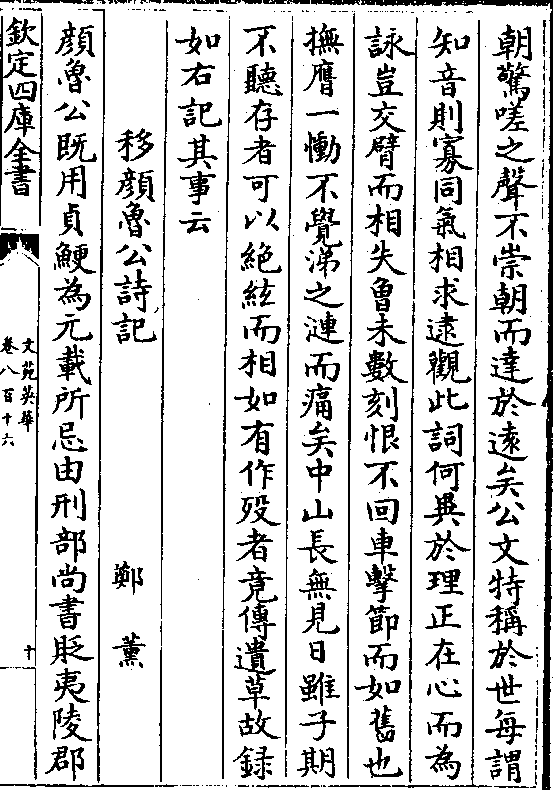 朝驚嗟之聲不崇朝而達於遠矣公文特稱於世每謂
知音則寡同氣相求逮觀此詞何異於理正在心而為
詠豈交臂而相失曾未數刻恨不回車擊節而如舊也
撫膺一慟不覺涕之漣而痛矣中山長無見日雖子期
不聽存者可以絕絃而相如有作歿者竟傳遺草故録
如右記其事云
移顔魯公詩記
鄭薰
顔魯公既用貞鯁為元載所忌由刑部尚書貶夷陵郡
欽定四庫全書
文苑英華
卷八百十六
十